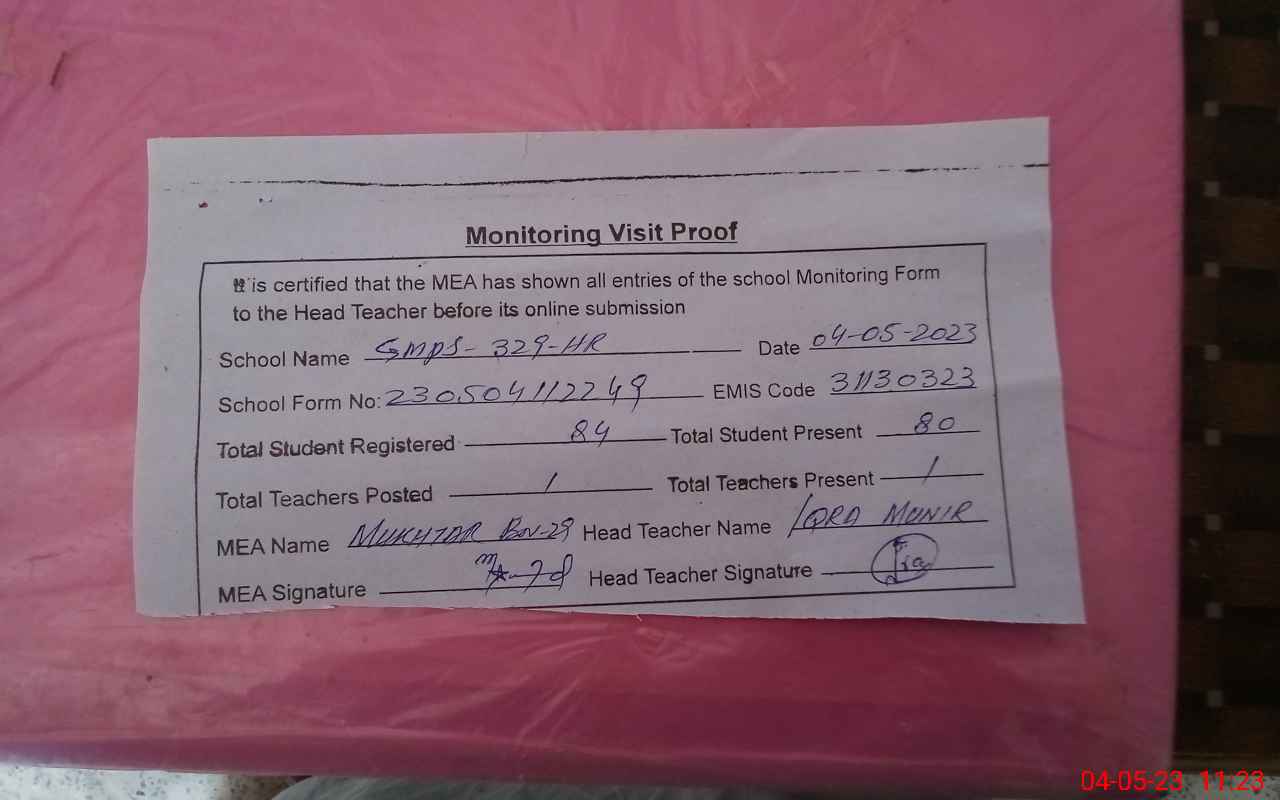 Monitoring Visit Proof
is certified that the MEA has shown all entries of the school Monitoring Form
to the Head Teacher before its online submission
School Name GMPS- 329-HR Date 04-05-2023
School Form No: 230504112249 EMIS Code 31130323
Total Student Registered 84 Total Student Present 80
Total Teachers Posted 1 Total Teachers Present 1
MEA Name MUKHTAR BN-29 Head Teacher Name IQRA MUNIR
MEA Signature Head Teacher Signature
04-05-23 11:23